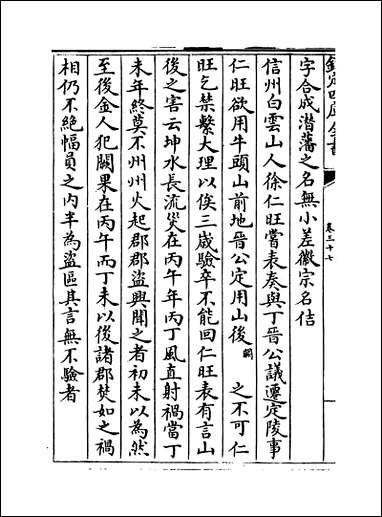 欽定四庫全書
卷三十七
字合成潛藩之名無小差徽宗名佶
信州白雲山人徐仁旺嘗表奏與丁晉公議遷定陵事
仁旺欲用牛頭山前地晉公定用山後闕之不可仁
旺乞禁繫大理以俟三歲驗卒不能回仁旺表有言山
後之害云坤水長流災在丙午年丙丁風直射禍當丁
未年終莫不州州火起郡郡盜興聞之者初未以為然
至後金人犯闕果在丙午而丁未以後諸郡焚如之禍
相仍不絕幅員之內半為盜區其言無不驗者